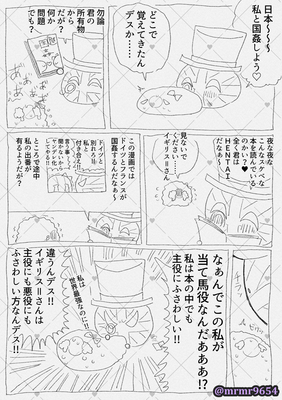 日本～～～
私と国姦しよう♡
どこで
覚えてきたん
デスか……
勿論
君の
所有物
からだが？
何か
問題
でも？
夜な夜な
こんなスケベな
本を読んでいる
のかい？♥
全く君は
HENTAI
だなぁ～
見ないで
ください……
イギリス＝さん
この漫画では
ドイツとフランスが
国姦するんだなぁ～
ドイツと
別れろ!!
私と
付き合え!!
ところで途中
私の出番が
有るようだが？
なぁんでこの私が
当て馬役なんだあああ!?
私は本の中でも
主役にふさわしい!!
私は
世界最強なのに!!
違うんデス!!
イギリス＝さんは
主役にも悪役にも
ふさわしい方なんデス!!
@mrmr9654